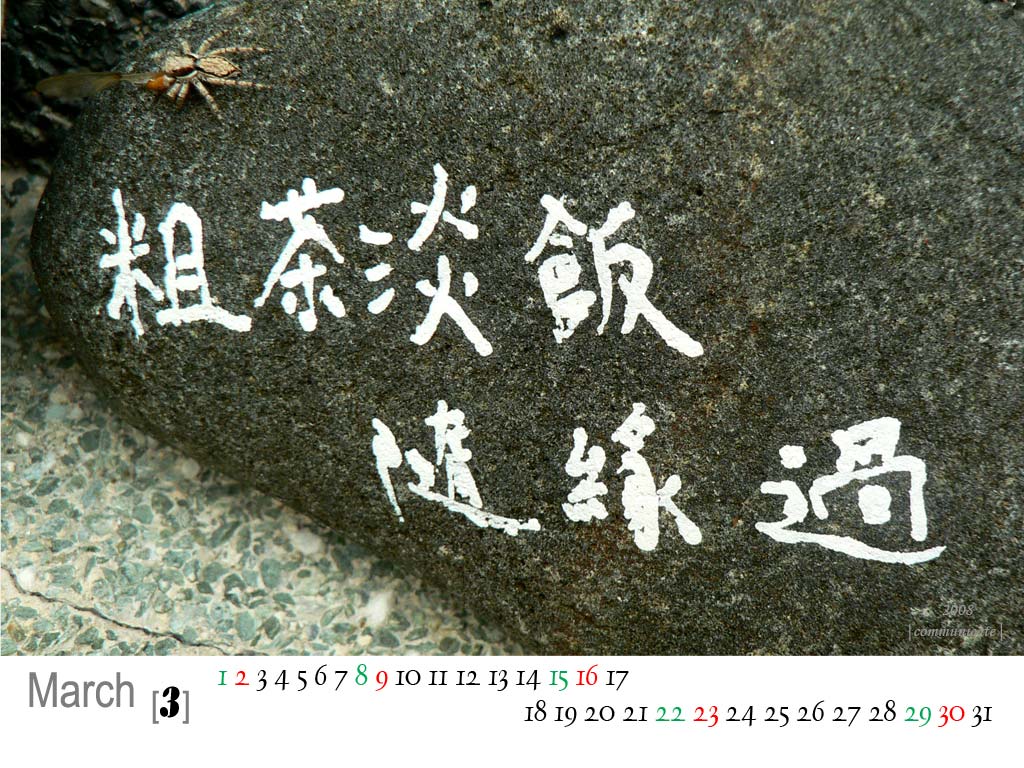 粗茶淡飯
隨緣過
2008
[communicate]
March [3]
1 2 3 4 5 6 7 8 9 10 11 12 13 14 15 16 17
18 19 20 21 22 23 24 25 26 27 28 29 30 31